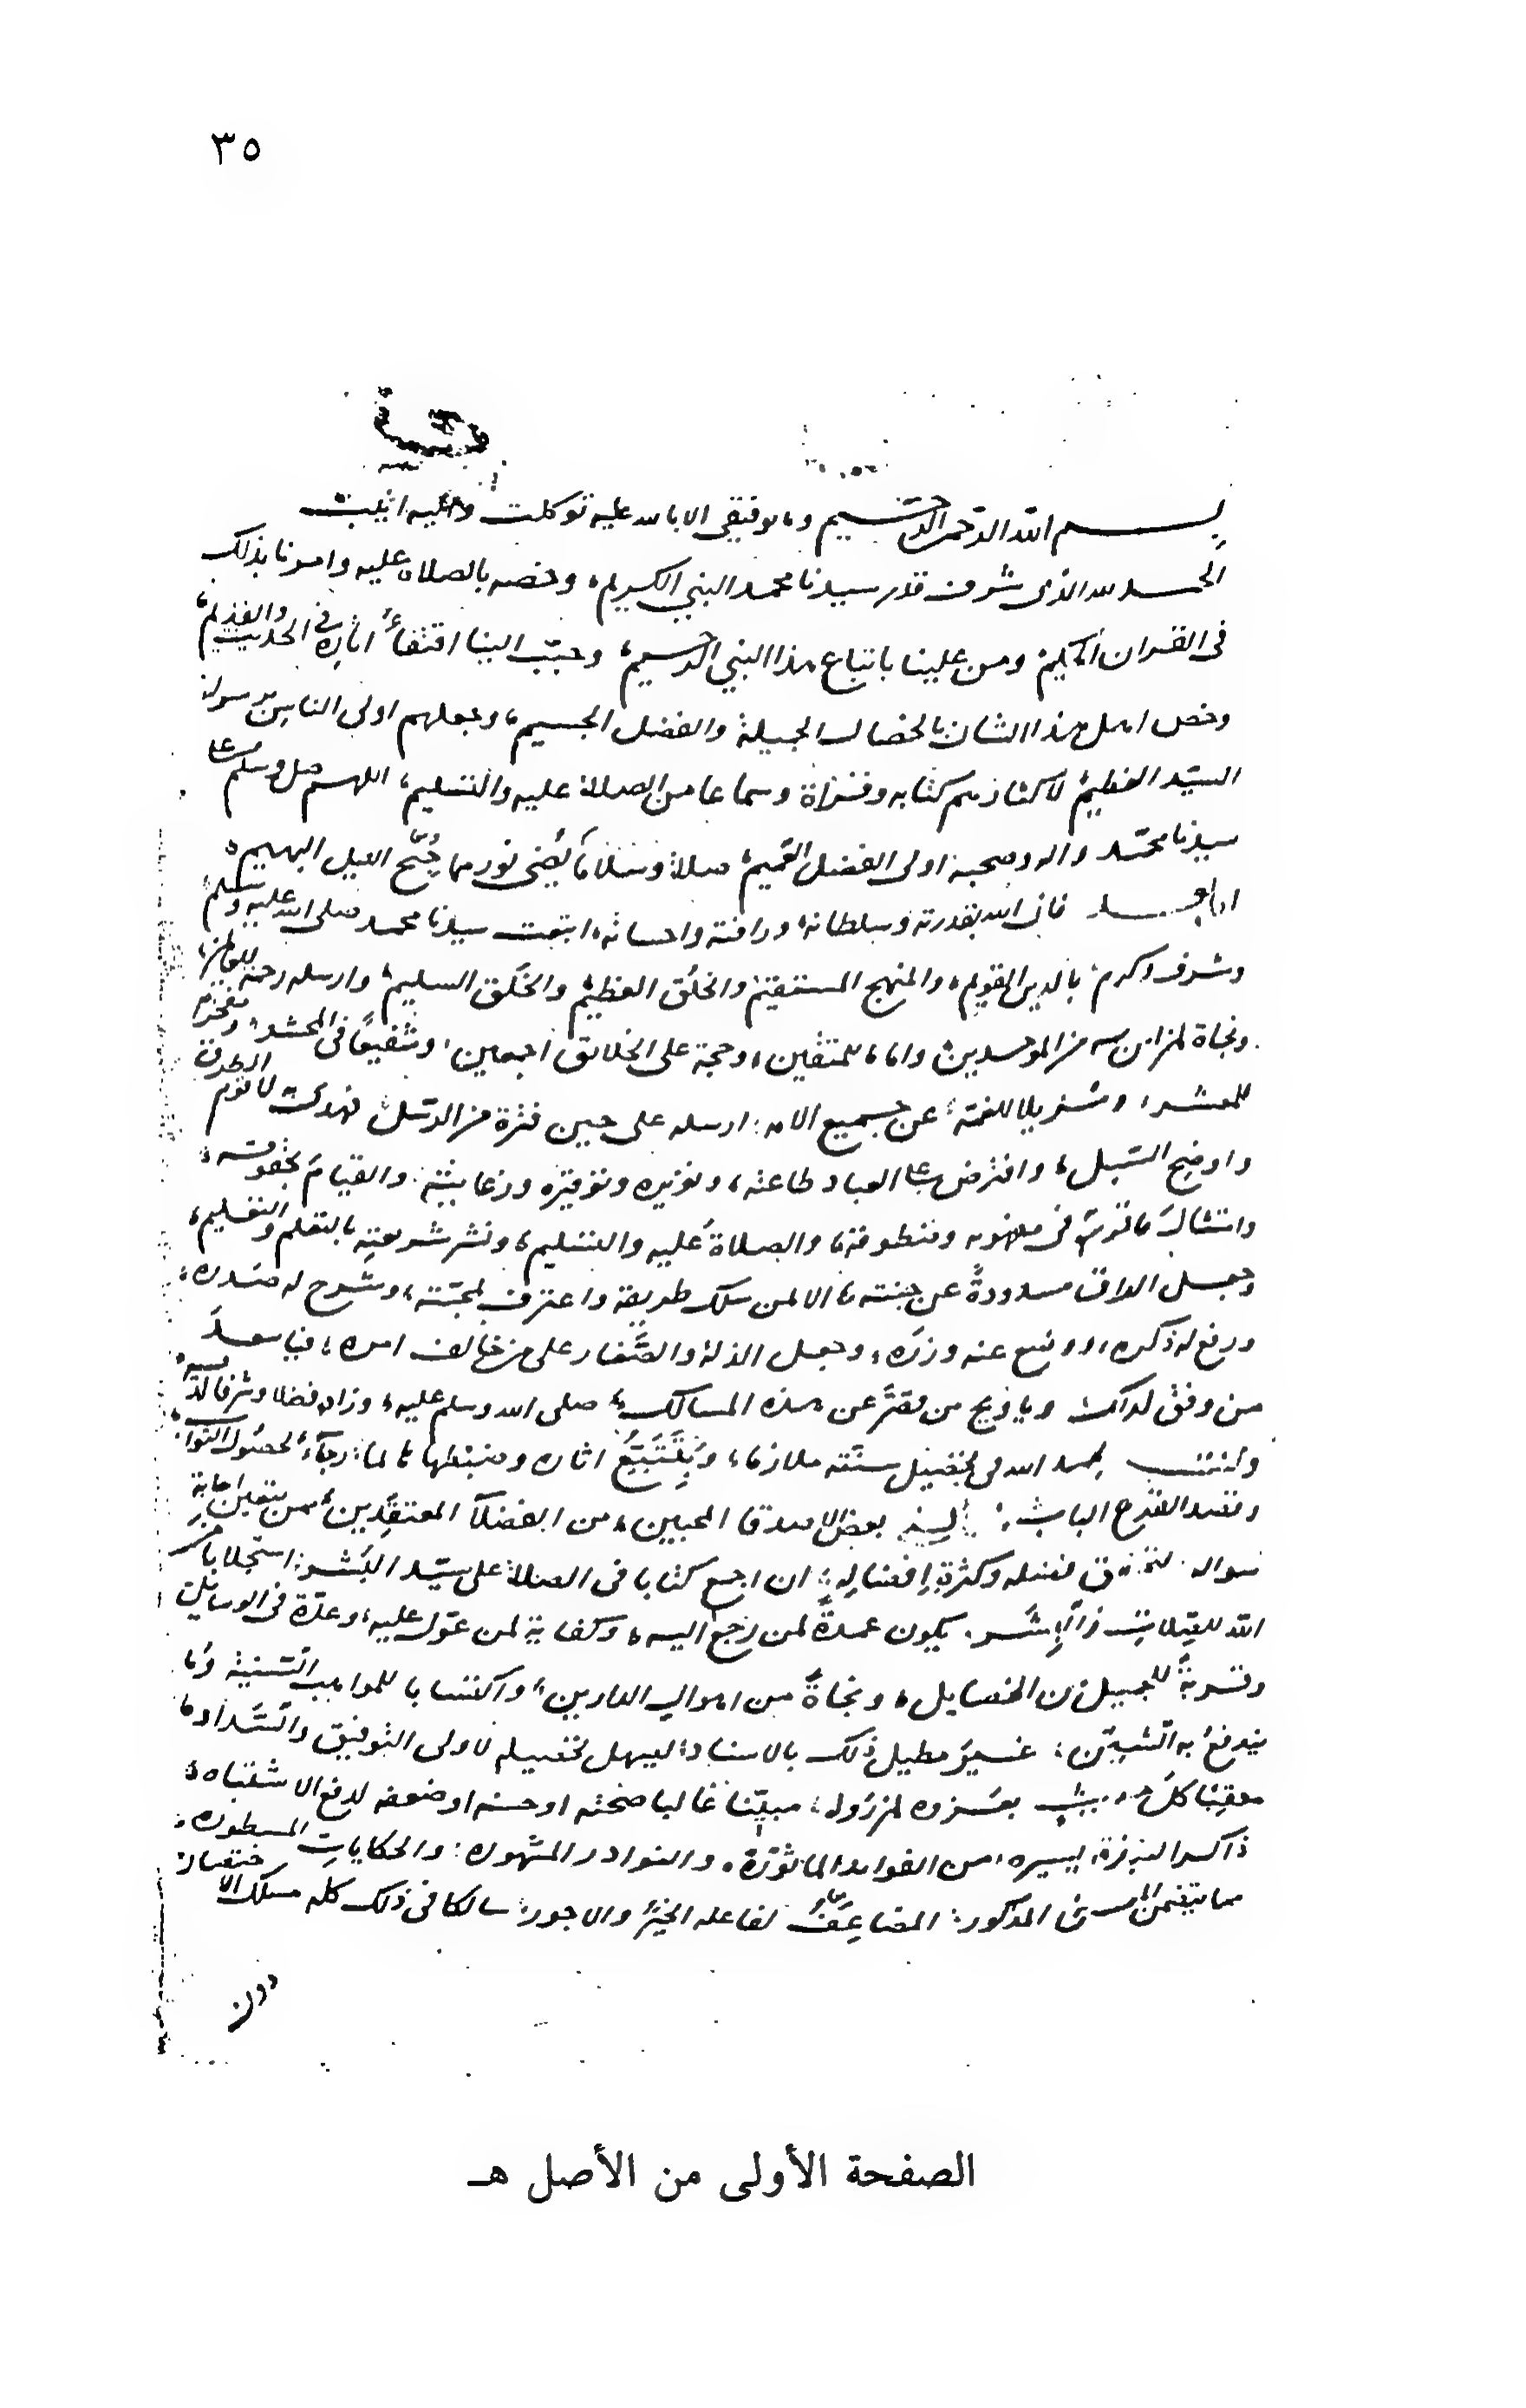 ٣٥
بسم الله الرحمن الرحيم وما توفيقي الا بالله عليه توكلت واليه انيب
الحمد لله الذى شرف قدر سيدنا محمد النبي الكريم، وخصه بالصلاه عليه وامرنا بذلك
فى القران الحكيم ومن علينا باتباع هذا النبي الرحيم، وحبب الينا اقتفاء اثاره فى الحديث والقديم،
وخص اهل هذا الشان بالخصال الجميلة والفضل الجسيم، وجعلهم اولى الناس برسوله
السيد العظيم لاكثارهم كتابه وقراة وسماعا من الصلاة عليه والتسليم، اللهم صل وسلم على
سيدنا محمد واله وصحبه اولى الفضل العميم صلاة وسلاما يضى نورهما جنح الليل البهيم،
اما بعد فان الله بقدرته وسلطانه، ورافته واحسانه، ابتعث سيدنا محمد صلى الله عليه وسلم
وشرف وكرم بالدين القويم، والمنهج المستقيم والخلق العظيم والخلق السليم، وارسله رحمة للعالمين،
ونجاة لمن امن به من الموحدين، واماما للمتقين، وحجة على الخلائق اجمعين، وشفيعا فى المحشر، ومفخرا
للمعشر، ومزيلا للغمة، عن جميع الامه: ارسله على حين فترة من الرسل فهدى به لاقوم الطرق
واوضح السبل، وافترض على العباد طاعته، وتعزيره وتوقيره ورعايته، والقيام بحقوقه،
وامتثال ما قرره فى مفهومه ومنطوقه، والصلاة عليه والتسليم، ونشر شريعته بالتعلم والتعليم،
وجعل الطرق مسدودة عن جنته، الا لمن سلك طريقه واعترف بمحبته، وشرح له صدره،
ورفع له ذكره، ووضع عنه وزره، وجعل الذلة والصغار على من خالف امره، فيا سعد
من وفق لذلك ويا ويح من قصر عن هذه المسالك، صلى الله وسلم عليه، وزاده فضلا وشرفا لديه
وكنت بحمد الله فى تحصيل سنته ملازما، وبتتبع اثاره وضبطها هائما: رجاء لحصول الثواب،
وقصد القرع الباب، بعض الاصدقا المحبين، من الفضلا المعتقدين، ممن يتعين اجابة
سواله فضله وكثرة افضاله: ان اجمع كتابا فى الصلاة على سيد البشر: استجلابا من
الله للصلات يكون عمدة لمن رجع اليه، وكفاية لمن عول عليه، وعدة فى الوسائل
وقربة للجميل من الخصايل، ونجاة من اهوال الدارين، واكتسابا للمواهب السنية وما
يندفع به الشين، غير مطيل ذلك بالاسناد، ليسهل تحصيله لاولى التوفيق والسداد،
معقبا كل حديث بعزوه لمن رواه، مبينا غالبا صحته او حسنه او ضعفه لدفع الاشتباه،
ذاكرا لنبذة يسيره، من الفوائد الماثورة، والنوادر المشهوره: والحكايات المسطوره:
مما يتضمن المعنى المذكور، المضاعف لفاعله الخير والاجور: سالكا فى ذلك كله مسلك الاختصار
دون
الصفحة الأولى من الأصل هـ